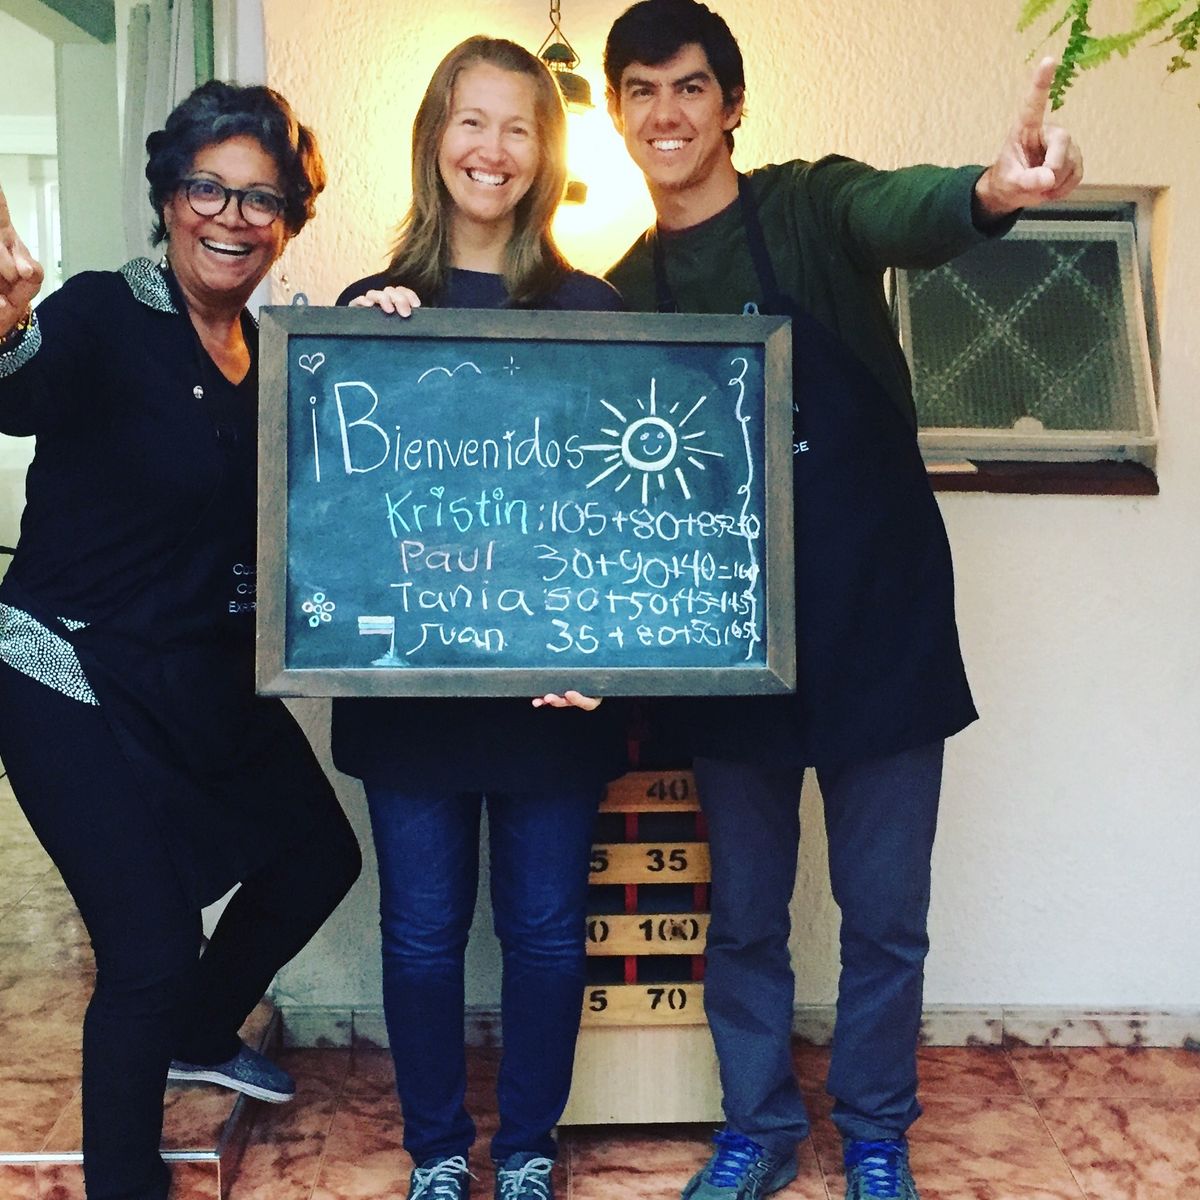 ¡Bienvenidos
Kristin: 105+80+85=270
Paul 30+90+40=160
Tania 50+50+45=145
Juan 35+80+50 165
40
5 35
0 100
5 70